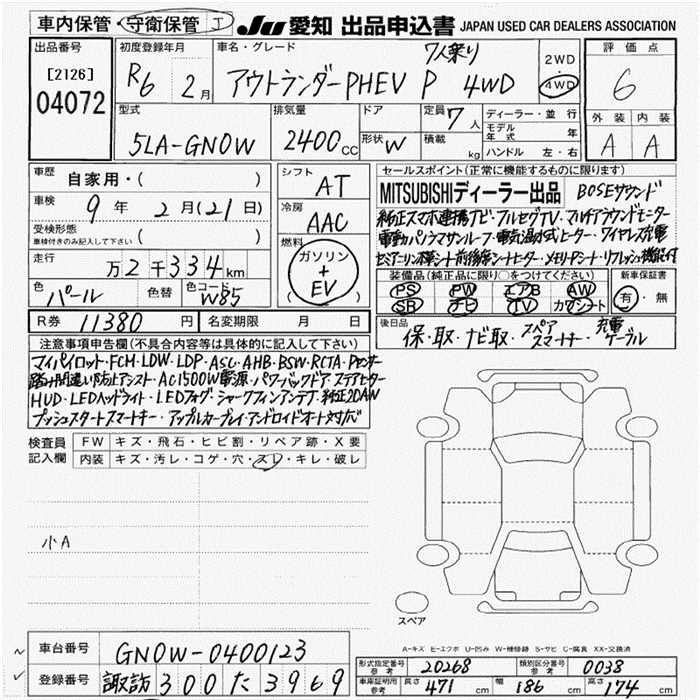 車内保管・守衛保管 J JU 愛知 出品申込書 JAPAN USED CAR DEALERS ASSOCIATION
出品番号 初度登録年月 車名・グレード 7人乗り 2WD 評価点
[2126] R6 2月 アウトランダーPHEV P 4WD 4WD 6
04072
型式 排気量 ドア 定員 7人 ディーラー・並行 外装 内装
5LA-GN0W 2400cc 形状 W 積載 kg モデル年式 年 A A
ハンドル 左・右
車歴 自家用・( ) シフト AT セールスポイント(正常に機能するものに限ります)
車検 9年2月(21日) 冷房 AAC MITSUBISHIディーラー出品 BOSEサウンド
受検形態 純正スマホ連携ナビ・フルセグTV・マルチアラウンドモニター
車検付きのみ記入して下さい ( ) 燃料 ガソリン+EV 電動パノラマサンルーフ・電気温水式ヒーター・ワイヤレス充電
走行 万2千334km セミアニリン本革シート前後席シートヒーター・メモリーシート・リフレッシュ機能付
色 パール 色替 色コード W85 装備品(純正品に限り○をつけて下さい) 新車保証書
PS PW エアB AW 有・無
SR ナビ TV カワシート
R券 11380円 名変期限 月 日 後日品 保・取・ナビ取・スペアスマートキー・充電ケーブル
注意事項申告欄(不具合内容等は具体的に記入して下さい)
マイパイロット・FCM・LDW・LDP・ASC・AHB・BSW・RCTA・Pセンサー
踏み間違い防止アシスト・AC1500W電源・パワーバックドア・ステアヒーター
HUD・LEDヘッドライト・LEDフォグ・シャークフィンアンテナ・純正20AW
プッシュスタートスマートキー・アップルカープレイ・アンドロイドオート対応
検査員記入欄 FW キズ・飛石・ヒビ割・リペア跡・X要
内装 キズ・汚レ・コゲ・穴・スレ・キレ・破レ
小A
スペア
A-キズ E-エクボ U-凹み W-補修跡 S-サビ C-腐食 XX-交換済
車台番号 GN0W-0400123
登録番号 諏訪300た3969
型式指定番号 参考 20268 類別区分番号 参考 0038
車庫証明用 参考 長さ 471cm 幅 186cm 高さ 174cm